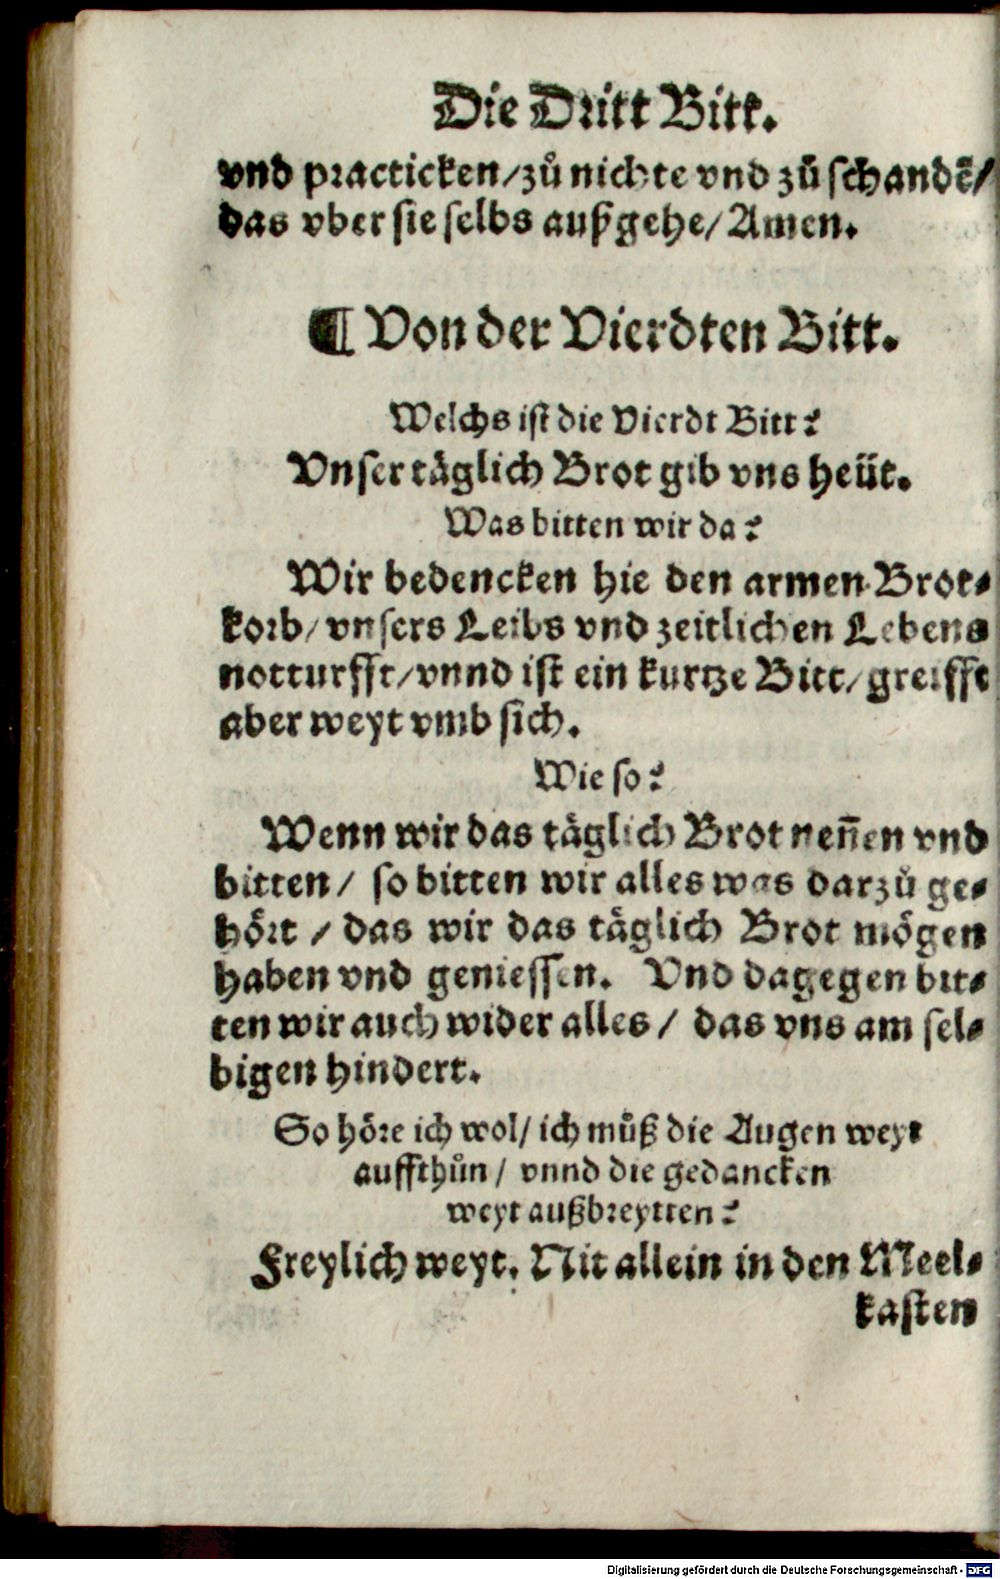 Die Dritt Bitt.
vnd practicken/zů nichte vnd zů schandẽ/
das vber sie selbs außgehe/Amen.
¶ Von der Vierdten Bitt.
Welchs ist die Vierdt Bitt?
Vnser täglich Brot gib vns heüt.
Was bitten wir da?
Wir bedencken hie den armen Brot-
korb/vnsers Leibs vnd zeitlichen Lebens
notturfft/vnnd ist ein kurtze Bitt/greifft
aber weyt vmb sich.
Wie so?
Wenn wir das täglich Brot neñen vnd
bitten/ so bitten wir alles was darzů ge-
hört / das wir das täglich Brot mögen
haben vnd geniessen. Vnd dagegen bit-
ten wir auch wider alles/ das vns am sel-
bigen hindert.
So höre ich wol/ ich můß die Augen weyt
auffthůn / vnnd die gedancken
weyt außbreytten?
Freylich weyt. Nit allein in den Meel-
kasten
Digitalisierung gefördert durch die Deutsche Forschungsgemeinschaft - DFG